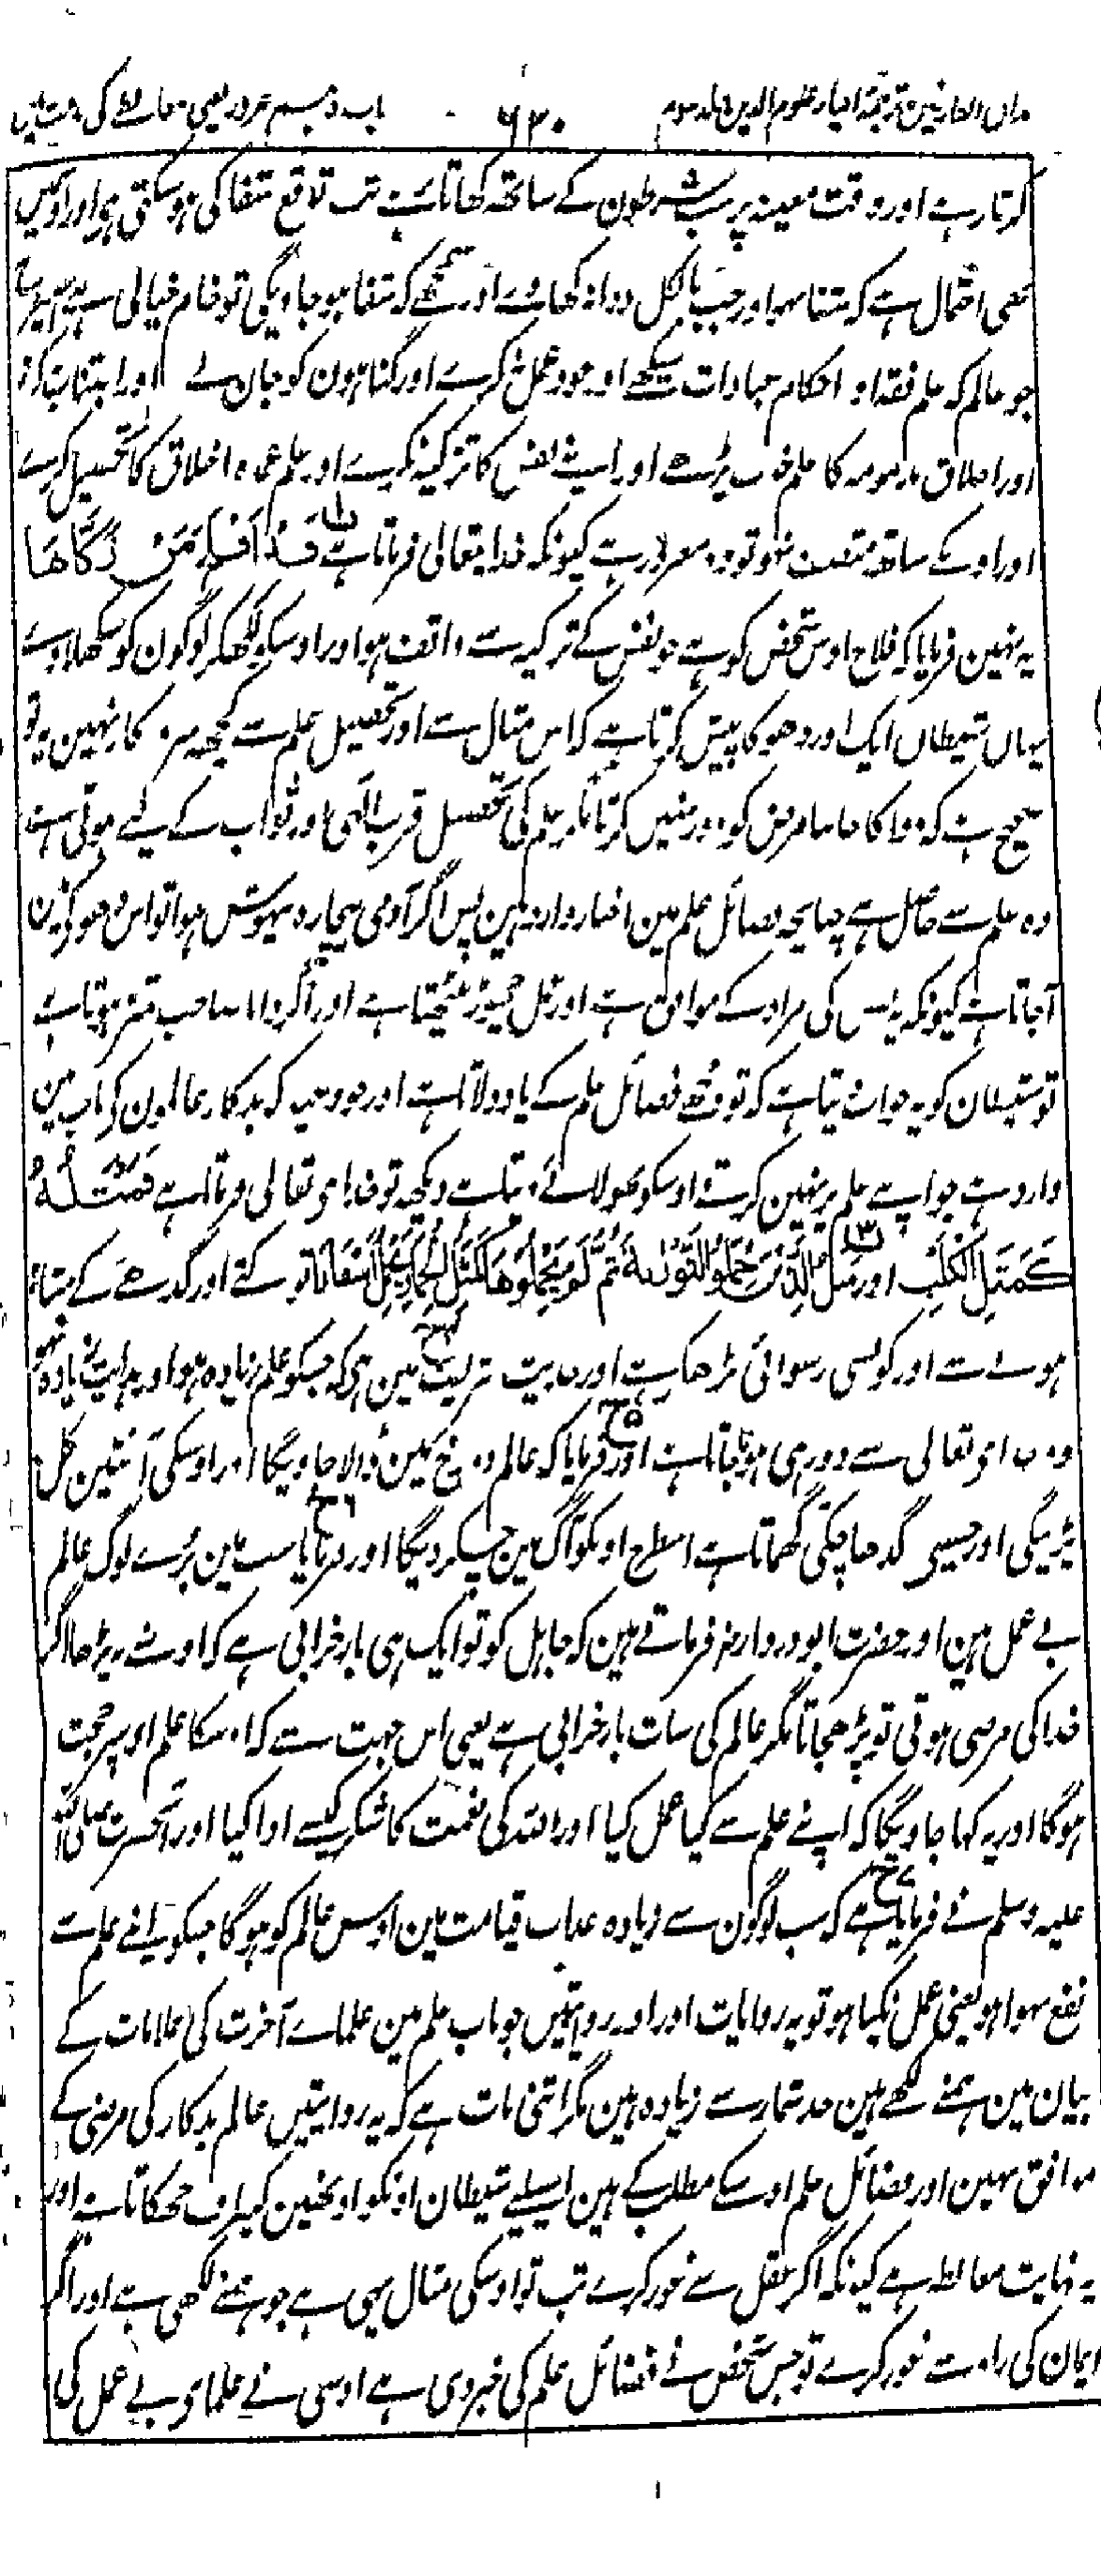 مذاق العارفین ترجمۂ احیاء علوم الدین جلد سوم ۶۳۰ باب دہم غرور یعنی مغالطے کی مذمت میں
کرتا رہے اور وقت معینہ پر سب شرطون کے ساتھ کھاتا ہے تب توقع شفا کی ہوسکتی ہی اور اوسمیں
بھی احتمال ہے کہ شفا نہو اور جب بالکل دوا نہ کھاوے اور سمجھے کہ شفا ہو جاویگی تو خام خیالی ہے
جو عالم کہ علم فقہ اور احکام عبادات سیکھے اور خود عمل نکرے اور گناہون کو جان لے اور اجتناب نکرے
اور اخلاق مذمومہ کا علم خوب پڑھے اور اپنے نفس کا تزکیہ نکرے اور علم عمدہ اخلاق کا تحصیل کرے
اور اوسکے ساتھ متصف نہو تو وہ مغرور ہے کیونکہ خدایتعالی فرماتا ہے قَدْ اَفْلَحَ مَنْ زَكّٰهَا
یہ نہین فرمایا کہ فلاح اوس شخص کو ہے جو نفس کے تزکیہ سے واقف ہو اور اوسکو لکھکر لوگون کو سکھلاوے
یہاں شیطان ایک اور دھوکا پیش کرتا ہے کہ اس مثال سے اور تحصیل علم سے کچھ سروکار نہین یہ تو
صحیح ہے کہ دوا کا جاننا مرض کو دور نہیں کرتا مگر علم کی تحصیل قرب الٰہی اور ثواب کے لیے ہوتی ہے
وہ علم سے حاصل ہے چنانچہ فضائل علم مین اخبار وارد ہین پس اگر آدمی بیچارہ بیہوش ہوا تو اس دھوکے مین
آجاتا ہے کیونکہ یہ اس کی مراد کے موافق ہے اور عمل چھوڑ بیٹھتا ہے اور اگر دانا صاحب تمیز ہوتا ہے
تو شیطان کو یہ جواب دیتا ہے کہ تو مجھے فضائل علم کے یاد دلاتا ہے اور جو وعید کہ بدکار عالمون کے باب مین
وارد ہے جو اپنے علم پر نہین کرتے اوسکو بھولائے دیتا ہے دیکھ تو خدایتعالی فرماتا ہے فَمَثَلُهُ
كَمَثَلِ الْكَلْبِ اور مَثَلُ الَّذِيْنَ حُمِّلُوا التَّوْرٰىةَ ثُمَّ لَمْ يَحْمِلُوْهَا كَمَثَلِ الْحِمَارِ يَحْمِلُ اَسْفَارًا تو کتے اور گدھے کے مشابہ
ہونے سے اور کونسی رسوائی بڑھکر ہے اور حدیث شریف مین ہی کہ جسکو علم زیادہ ہو اور ہدایت زیادہ نہو
وہ خدایتعالی سے دور ہی ہوتا جاتا ہے اور فرمایا کہ عالم دوزخ مین ڈالا جاویگا اور اوسکی آنتین نکل
پڑینگی اور جیسے گدھا چکی گھماتا ہے اسطرح اونکو آگ مین چکر دیگا اور فرمایا سب مین بُرے لوگ عالم
بے عمل ہین اور حضرت ابو درداء رضہ فرماتے ہین کہ جاہل کو تو ایک ہی بار خرابی ہے کہ اوسنے نہ پڑھا اگر
خدا کی مرضی ہوتی تو پڑھجاتا مگر عالم کی سات بار خرابی ہے یعنی اس جہت سے کہ اوسکا علم اوسپر حجت
ہوگا اور یہ کہا جاویگا کہ اپنے علم سے کیا عمل کیا اور اللہ کی نعمت کا شکر کیسے ادا کیا اور آنحضرت صلی اللہ
علیہ وسلم نے فرمایا ہے کہ سب لوگون سے زیادہ عذاب قیامت مین اوس عالم کو ہوگا جسکو اپنے علم سے
نفع نہوا ہو یعنی عمل نکیا ہو تو یہ روایات اور اور روایتیں جو باب علم مین علمائے آخرت کی علامات کے
بیان مین ہمنے لکھے ہین حد شمار سے زیادہ ہین مگر اتنی بات ہے کہ یہ روایتیں عالم بدکار کی مرضی کے
موافق نہین اور فضائل علم اوسکے مطلب کے ہین اسلیے شیطان اونکو اونھین کیطرف جھکاتا ہے اور
یہ نہایت مغالطہ ہے کیونکہ اگر عقل سے غور کرے تب تو اوسکی مثال یہی ہے جو ہمنے لکھی ہے اور اگر
ایمان کی راہ سے غور کرے تو جس شخص نے فضائل علم کی خبر دی ہے اوسی نے علمای بے عمل کی